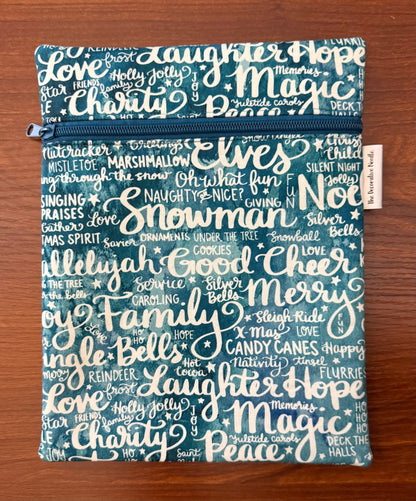 REINDEER Laughter Hope FLURRIE
Love frost Memories
FRIENDS Holly Jolly JOY Magic
Star family Yuletide carols DECK THE
Charity Peace HALLS
Snow Angels
Nutcracker Greetings Elves Christ
MISTLETOE MARSHMALLOW Child
ing through the snow Oh what fun FUN SILENT NIGHT
SINGING NAUGHTY or NICE? GIVING Jolly
PRAISES Love Snowman No
Gather Silver
TMAS SPIRIT Savior ORNAMENTS UNDER THE TREE Snowball Bells
COOKIES
allelujah Good Cheer
THE TREE Service Silver
the Bells CAROLING Bells Merry
oy Family Sleigh Ride FUN
Love HO HO HO HOPE X-Mas LOVE
ngle Bells CANDY CANES Happy
Merry REINDEER Hot Cocoa Nativity tinsel
Love frost Laughter Hope FLURRIES
FRIENDS Holly Jolly JOY Memories
Star family Magic
Charity Yuletide carols DECK THE
JOY HO HO Saint Peace HALLS
The Decorative Needle